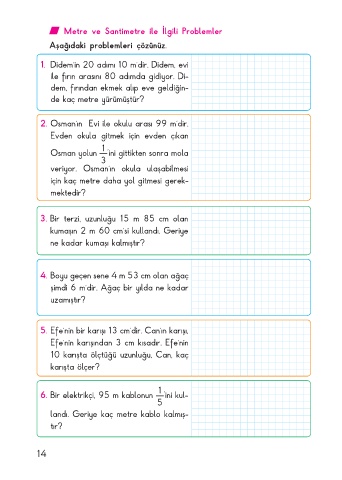 Metre ve Santimetre ile İlgili Problemler
Aşağıdaki problemleri çözünüz.
1. Didem'in 20 adımı 10 m'dir. Didem, evi
ile fırın arasını 80 adımda gidiyor. Di-
dem, fırından ekmek alıp eve geldiğin-
de kaç metre yürümüştür?
2. Osman'ın Evi ile okulu arası 99 m'dir.
Evden okula gitmek için evden çıkan
Osman yolun 1/3 'ini gittikten sonra mola
veriyor. Osman'ın okula ulaşabilmesi
için kaç metre daha yol gitmesi gerek-
mektedir?
3. Bir terzi, uzunluğu 15 m 85 cm olan
kumaşın 2 m 60 cm'si kullandı. Geriye
ne kadar kumaşı kalmıştır?
4. Boyu geçen sene 4 m 53 cm olan ağaç
şimdi 6 m'dir. Ağaç bir yılda ne kadar
uzamıştır?
5. Efe'nin bir karışı 13 cm'dir. Can'ın karışı,
Efe'nin karışından 3 cm kısadır. Efe'nin
10 karışta ölçtüğü uzunluğu, Can, kaç
karışta ölçer?
6. Bir elektrikçi, 95 m kablonun 1/5 'ini kul-
landı. Geriye kaç metre kablo kalmış-
tır?
14